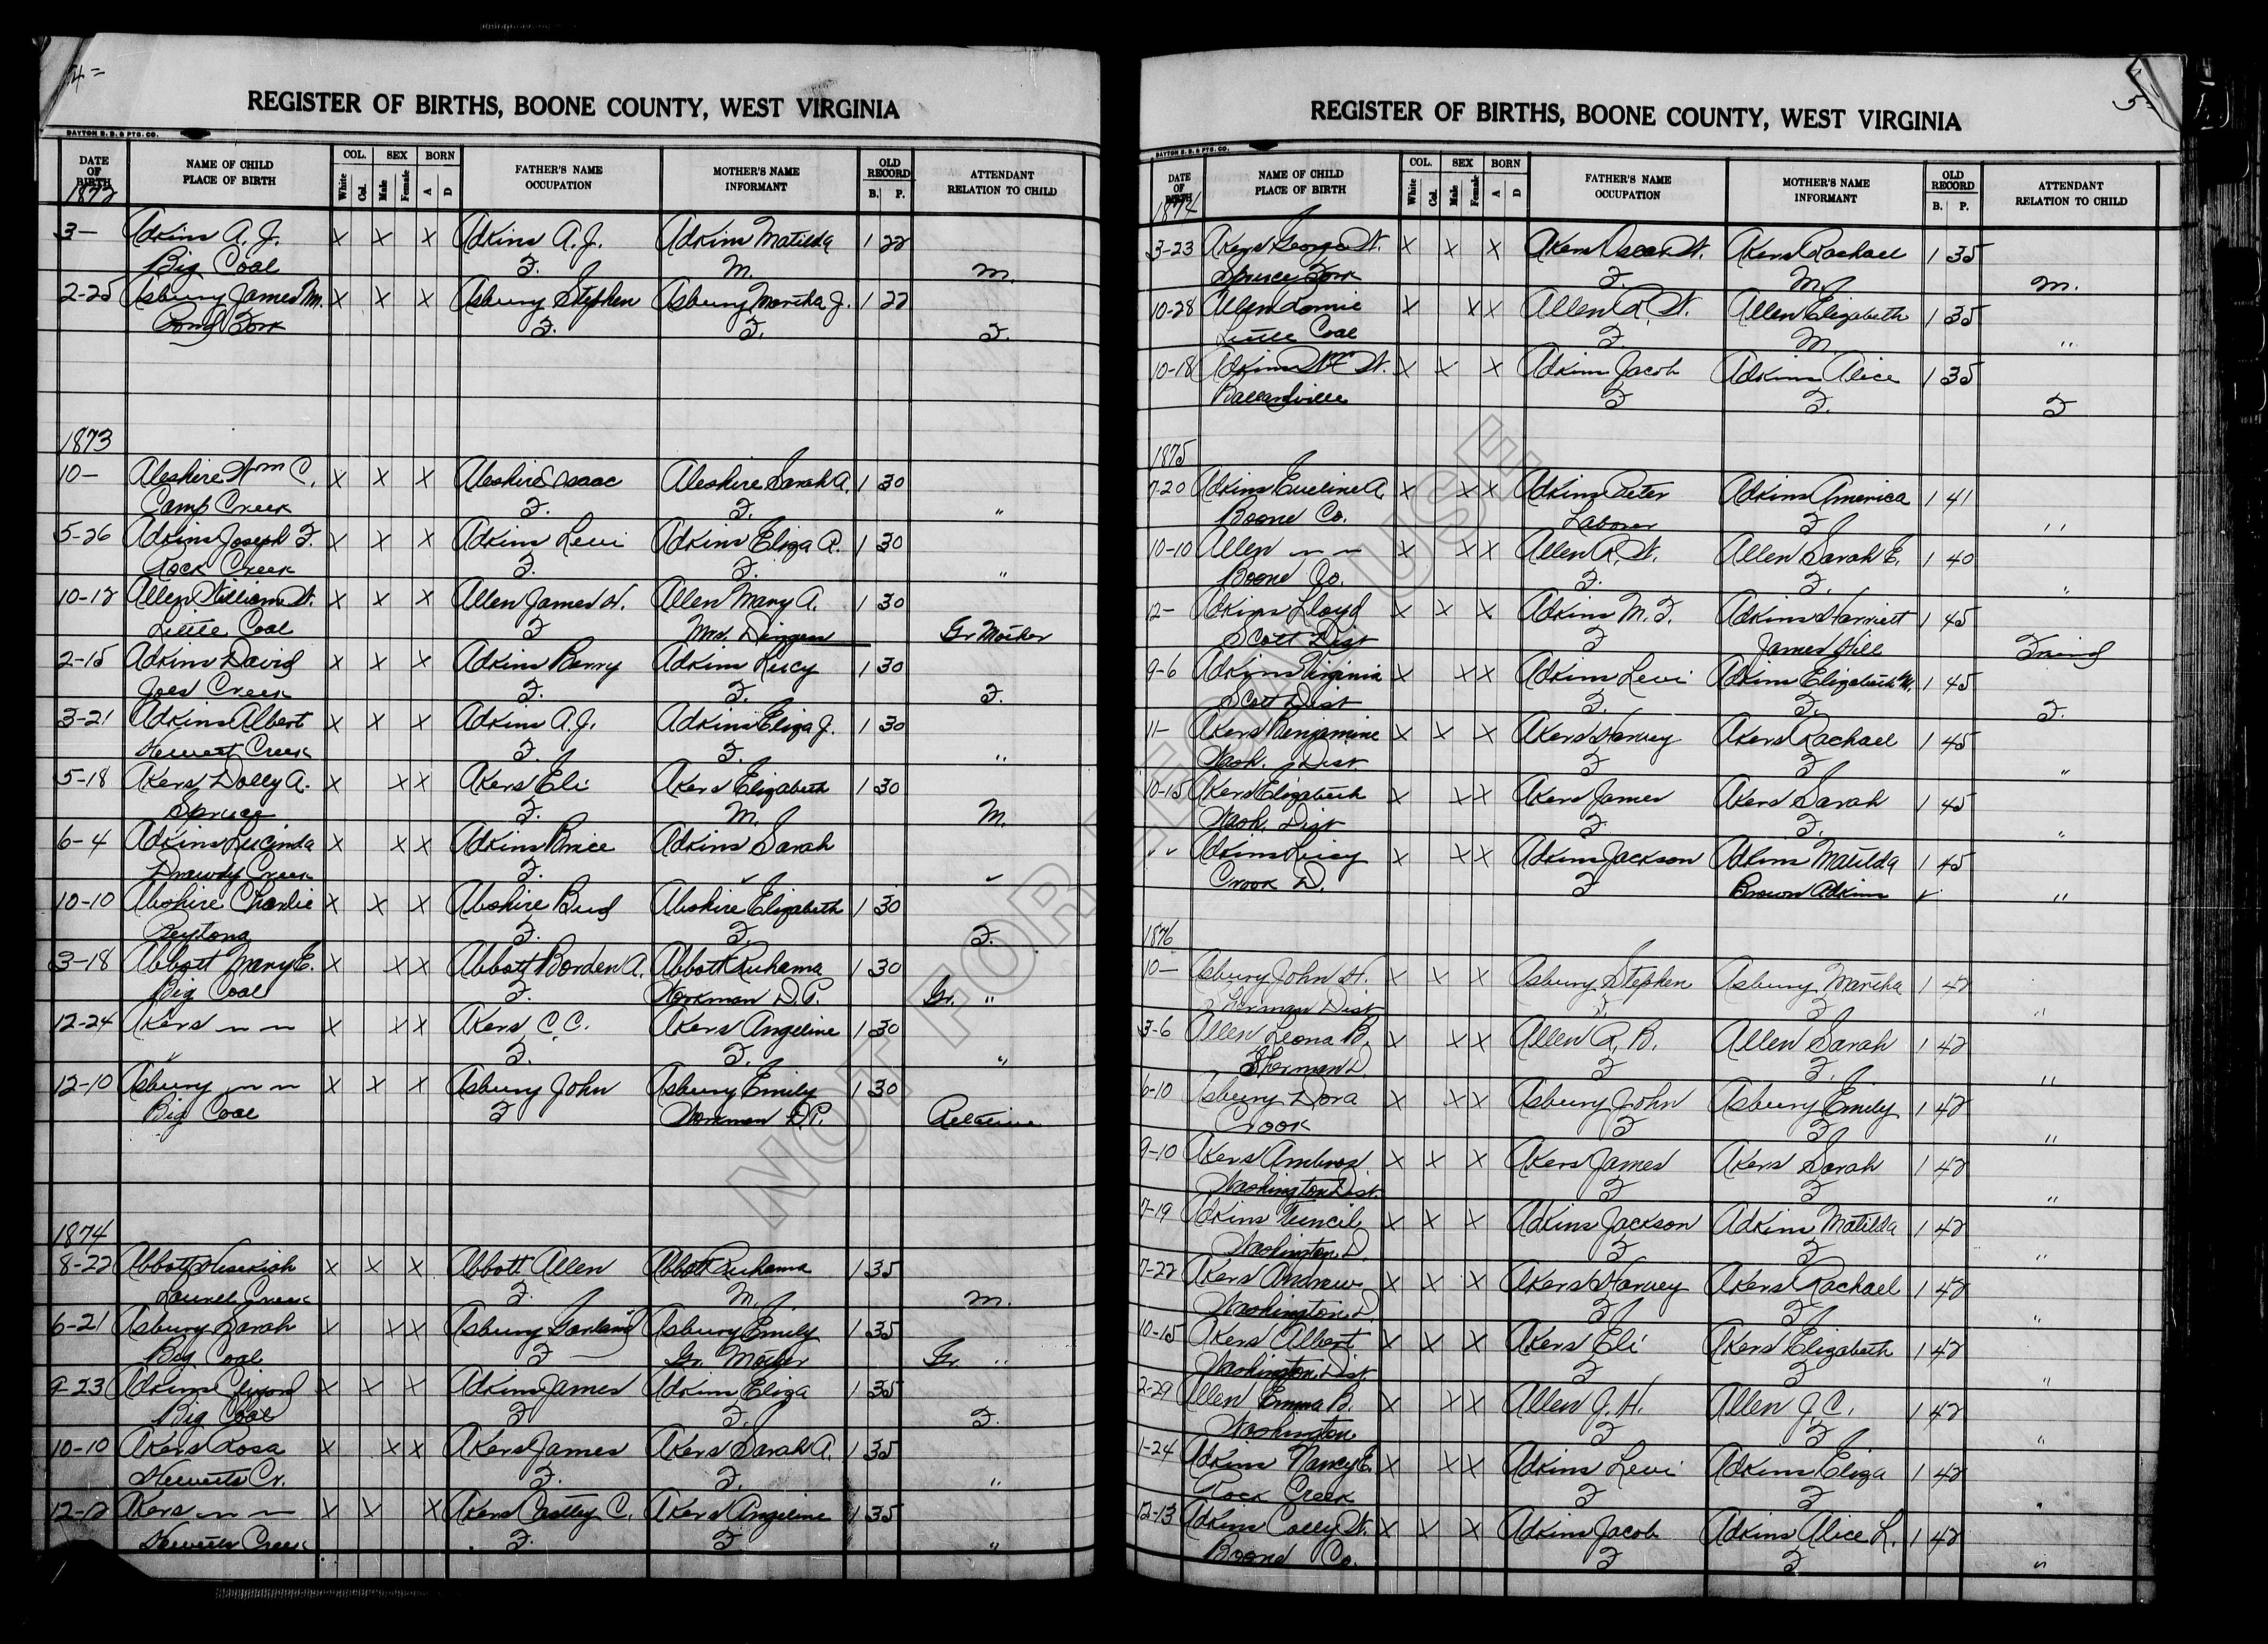 4-
REGISTER OF BIRTHS, BOONE COUNTY, WEST VIRGINIA
DAYTON B. B. & PTG. CO.
DATE OF BIRTH NAME OF CHILD PLACE OF BIRTH COL. White Col. SEX Male Female BORN A D FATHER'S NAME OCCUPATION MOTHER'S NAME INFORMANT OLD RECORD B. P. ATTENDANT RELATION TO CHILD
1872
3- Adkins A. J. X X X Adkins A. J. Adkins Matilda 1 22
Big Coal F. M. M.
2-25 Asbury James M. X X X Asbury Stephen Asbury Martha J. 1 22
Pond Fork F. F. F.
1873
10- Aleshire Wm C. X X X Aleshire Isaac Aleshire Sarah A. 1 30
Camp Creek F. F. "
5-26 Adkins Joseph F. X X X Adkins Levi Adkins Eliza R. 1 30
Rock Creek F. F. "
10-12 Allen William W. X X X Allen James H. Allen Mary A. 1 30
Little Coal F Mrs. Gr Mother
2-15 Adkins David X X X Adkins Berry Adkins Lucy 1 30
Joes Creek F. F. F.
3-21 Adkins Albert X X X Adkins A. J. Adkins Eliza J. 1 30
Hewett Creek F. F. "
5-18 Akers Dolly A. X X X Akers Eli Akers Elizabeth 1 30
Spruce F. M. M.
6-4 Adkins Lucinda X X X Adkins Price Adkins Sarah
Drawdy Creek F. ✓ ✓
10-10 Abshire Charlie X X X Abshire Bud Abshire Elizabeth 1 30
Peytona F. F. F.
3-18 Abbott Mary E. X X X Abbott Borden A. Abbott Ruhama 1 30
Big Coal F. Workman D. P. Gr. "
12-24 Akers X X X Akers C. C. Akers Angeline 1 30
✓ F. F. "
12-10 Asbury X X X Asbury John Asbury Emily 1 30
Big Coal F Workman D.P. Relative
1874
8-22 Abbott Hesekiah X X X Abbott Allen Abbott Ruhama 1 35
Laurel Creek F. M. M.
6-21 Asbury Sarah X X X Asbury Garland Asbury Emily 1 35
Big Coal F Gr. Mother Gr. "
9-23 Adkins X X X Adkins James Adkins Eliza 1 35
Big Coal F F. F.
10-10 Akers Rosa X X X Akers James Akers Sarah A. 1 35
Hewetts Cr. F. F. "
12-12 Akers X X X Akers Castley C. Akers Angeline 1 35
Hewetts Creek F. F "
5-
REGISTER OF BIRTHS, BOONE COUNTY, WEST VIRGINIA
DAYTON B. B. & PTG. CO.
DATE OF BIRTH NAME OF CHILD PLACE OF BIRTH COL. White Col. SEX Male Female BORN A D FATHER'S NAME OCCUPATION MOTHER'S NAME INFORMANT OLD RECORD B. P. ATTENDANT RELATION TO CHILD
1874
3-23 Akers George W. X X X Akers Oscar W. Akers Rachael 1 35
Spruce Fork F. M. M.
10-28 Allen X X X Allen R. W. Allen Elizabeth 1 35
Little Coal F. M. "
10-18 Adkins Wm W. X X X Adkins Jacob Adkins Alice 1 35
Ballardsville F F. F
1875
7-20 Adkins Eveline A. X X X Adkins Peter Adkins America 1 41
Boone Co. Laborer F "
10-10 Allen X X X Allen R. W. Allen Sarah E. 1 40
Boone Co. F. F. "
12- Adkins Lloyd X X X Adkins M. F. Adkins Harriett 1 45
Scott Dist F James Hill Friend
9-6 Adkins Virginia X X X Adkins Levi Adkins Elizabeth M. 1 45
Scott Dist F. F. F.
11- Akers Benjamine X X X Akers Harvey Akers Rachael 1 45
Wash. Dist F F "
10-15 Akers Elizabeth X X X Akers James Akers Sarah 1 45
Wash. Dist F. F. "
✓ ✓ Adkins Lucy X X X Adkins Jackson Adkins Matilda 1 45
Crook D. F Brown Adkins ✓ "
1876
10- Asbury John H. X X X Asbury Stephen Asbury Martha 1 42
Sherman Dist F. F "
3-6 Allen Leona B. X X X Allen R. B. Allen Sarah 1 42
Sherman D. F F. "
6-10 Asbury Dora X X X Asbury John Asbury Emily 1 42
Crook F F "
9-10 Akers Ambros X X X Akers James Akers Sarah 1 42
Washington Dist. F F "
7-19 Adkins X X X Adkins Jackson Adkins Matilda 1 42
Washington D. F F "
7-22 Akers Andrew X X X Akers Harvey Akers Rachael 1 42
Washington D. F F "
10-15 Akers Albert X X X Akers Eli Akers Elizabeth 1 42
Washington Dist F F "
2-29 Allen Emma B. X X X Allen J. H. Allen J. C. 1 42
Washington F F "
1-24 Adkins Nancy E. X X X Adkins Levi Adkins Eliza 1 42
Rock Creek F F "
12-13 Adkins Colley W. X X X Adkins Jacob Adkins Alice L. 1 42
Boone Co. F F "
NOT FOR LEGAL USE